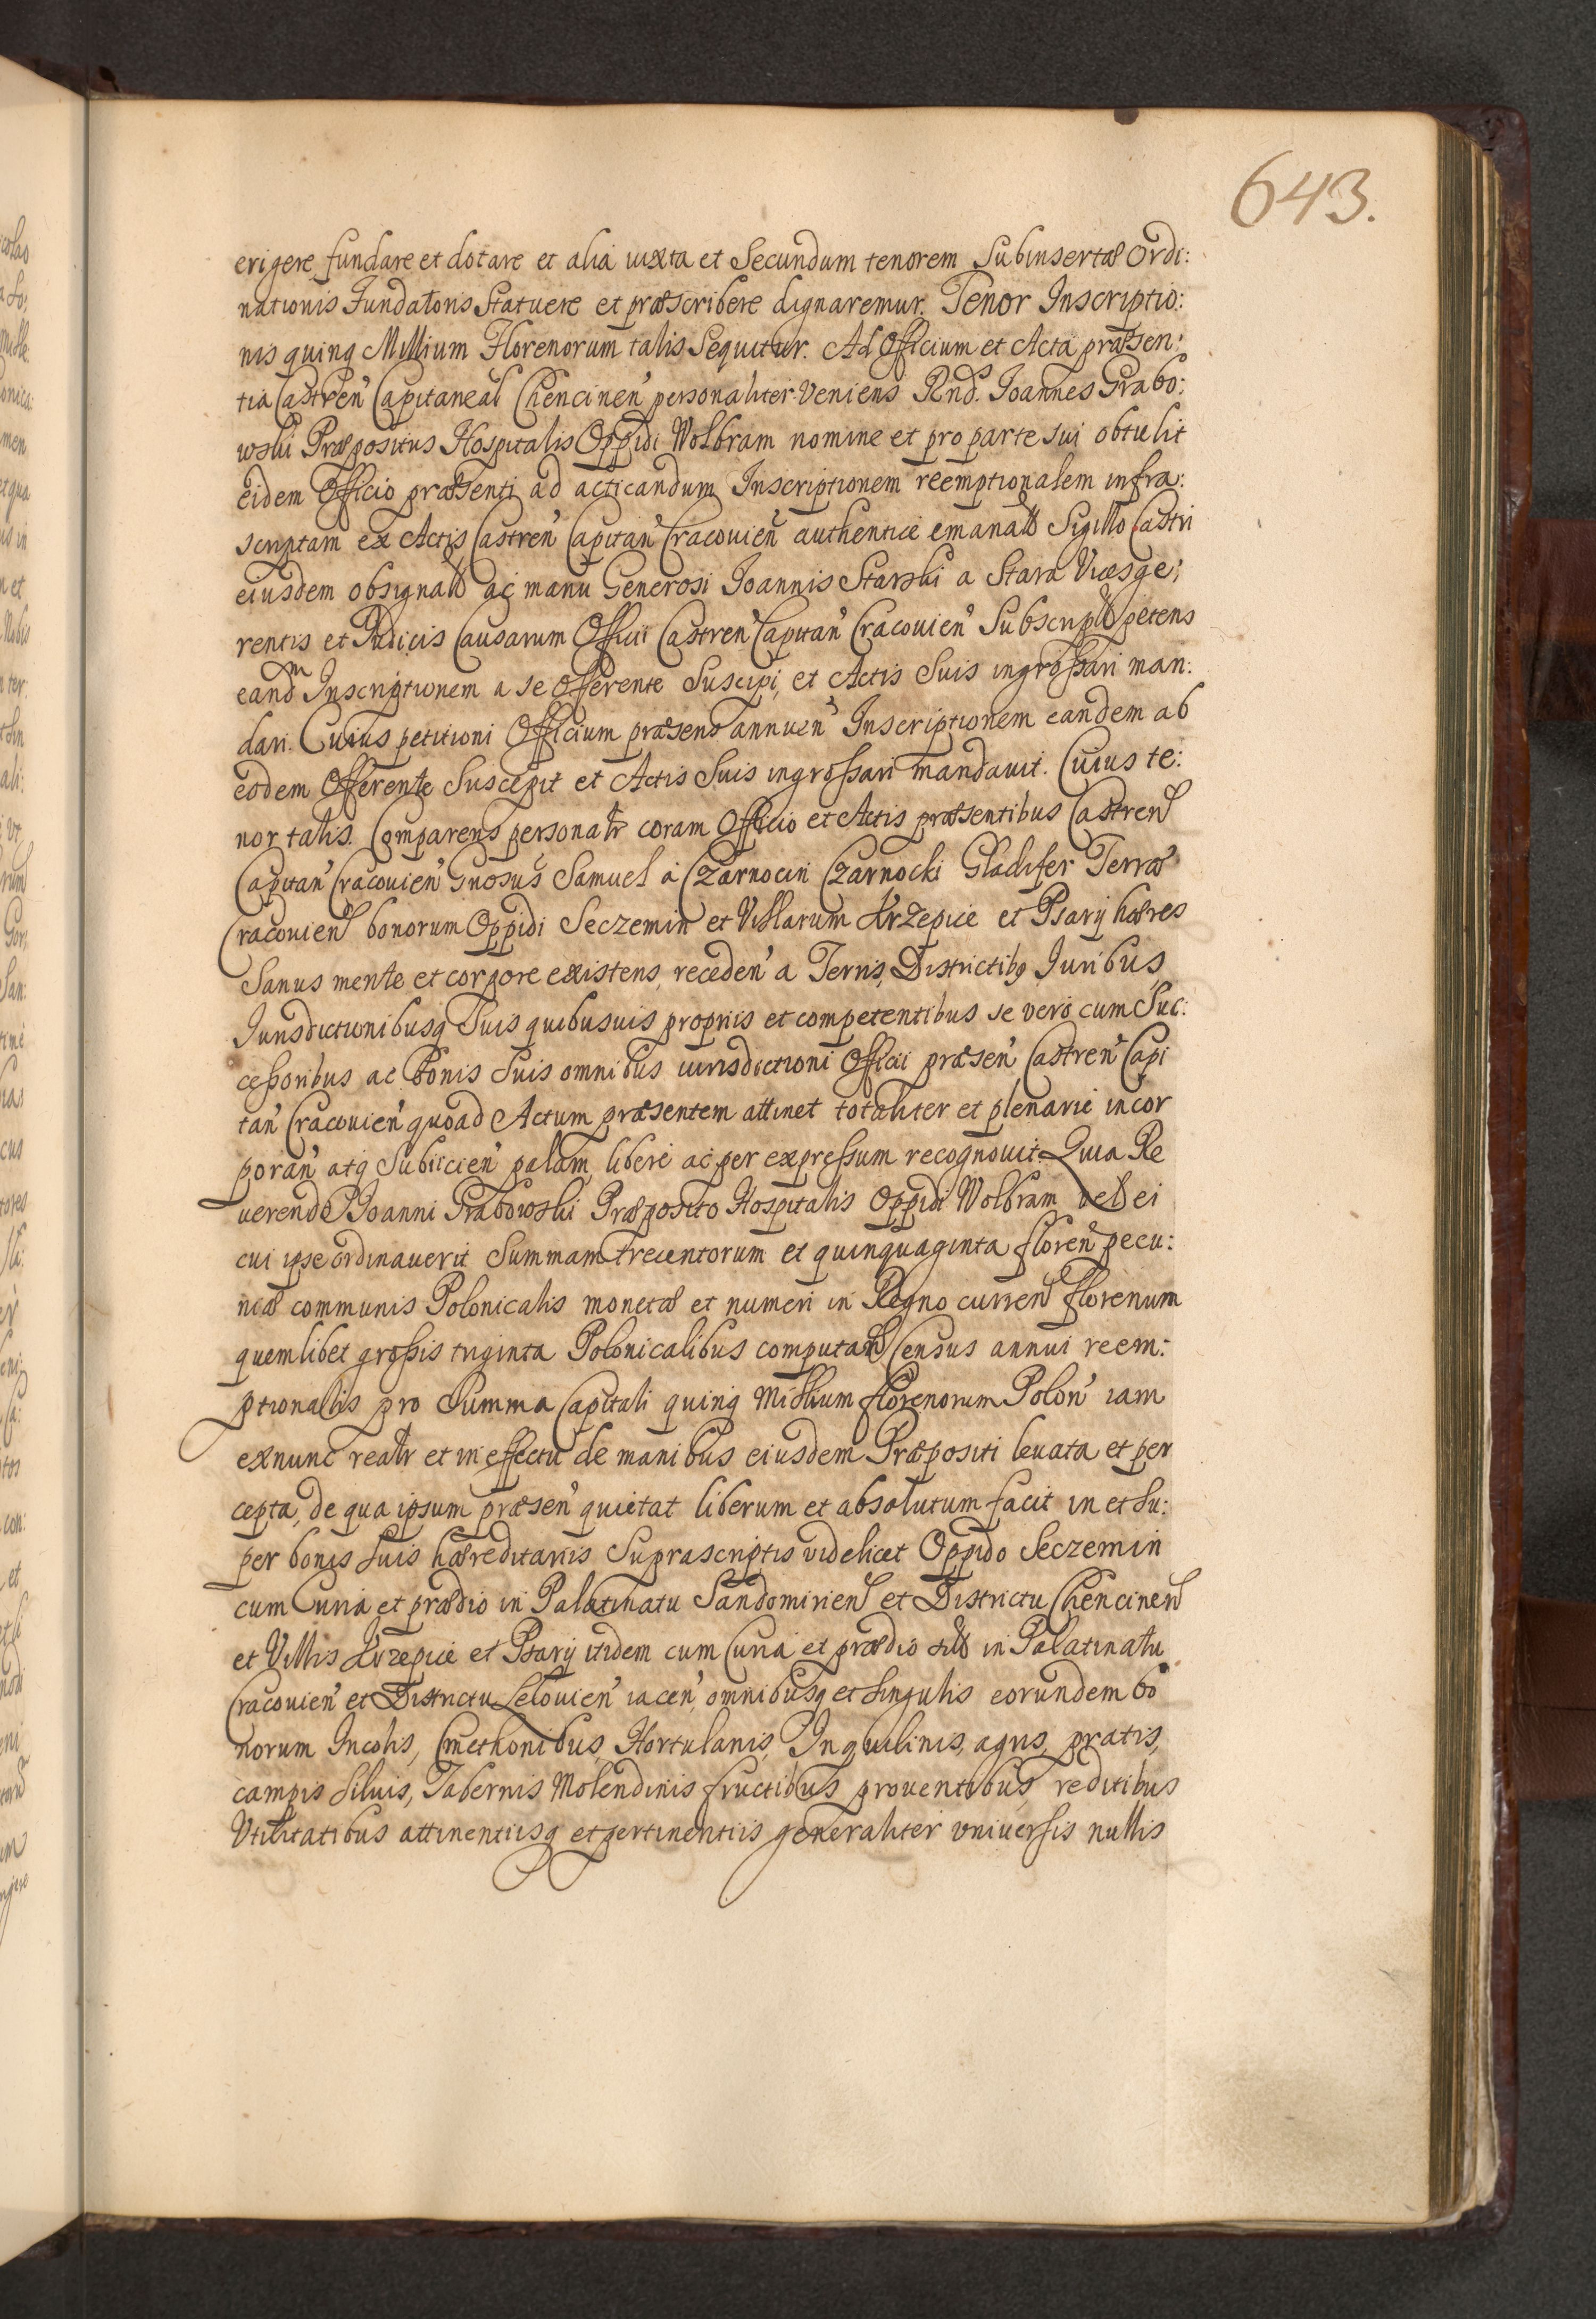 643.
erigere fundare et dotare et alia iuxta et Secundum tenorem Subinsertæ Ordi:
nationis Fundatoris Statuere et præscribere dignaremur. Tenor Inscriptio:
nis quinq Millium Florenorum talis Sequitur. Ad Officium et Acta præsen:
tia Castren Capitaneal Chencinen personaliter Veniens Rnds. Ioannes Grabo:
wski Præpositus Hospitalis Oppidi Wolbram nomine et pro parte sui obtulit
eidem Officio præsenti ad acticandum Inscriptionem reemptionalem infra:
scriptam ex Actis Castren Capitan Cracouien authentice emanat Sigillo Castri
eiusdem obsignat ac manu Generosi Ioannis Starski a Stara Vicesge:
rentis et Iudicis Causarum Officii Castren Capitan Cracouien Subscript petens
eandm Inscriptionem a se Offerente Suscipi, et Actis Suis ingrossari man:
dari. Cuius petitioni Officium præsens annuens Inscriptionem eandem ab
eodem Offerente Suscepit et Actis Suis ingrossari mandauit. Cuius te:
nor talis. Comparens personalr coram Officio et Actis præsentibus Castren
Capitan Cracouien Gnosus Samuel à Czarnocin Czarnocki Gladifer Terræ
Cracouien bonorum Oppidi Seczemin et Villarum Krzepice et Psarÿ hæres
Sanus mente et corpore existens, receden a Terris, Districtibq Iuribus,
Iurisdictionibusq Suis quibusuis propriis et competentibus se vero cum Suc:
cessoribus ac Bonis Suis omnibus iurisdictioni Officii præsen Castren Capi
tan Cracouien quoad Actum præsentem attinet totaliter et plenarie incor
poran atq Subiicien palam, libere ac per expressum recognouit. Quia Re
uerendo Ioanni Grabowski Præposito Hospitalis Oppidi Wolbram vel ei
cui ipse ordinauerit Summam trecentorum et quinquaginta floren pecu:
niæ communis Polonicalis monetæ et numeri in Regno curren florenum
quemlibet grossis triginta Polonicalibus computan Census annui reem:
ptionalis pro Summa Capitali quinq Millium florenorum Polon iam
exnunc realr et in effectu de manibus eiusdem Præpositi leuata et per
cepta, de qua ipsum præsen quietat liberum et absolutum facit in et su:
per bonis Suis hæreditariis Suprascriptis videlicet Oppido Seczemin
cum Curia et prædio in Palatinatu Sandomirien et Districtu Chencinen
et Villis Krzepice et Psarÿ itidem cum Curia et prædio sit in Palatinatu
Cracouien et Districtu Lelouien iacen, omnibusq et singulis eorundem bo
norum Incolis, Cmethonibus, Hortulanis, Inquilinis, agris, pratis,
campis siluis, Tabernis Molendinis fructibus prouentibus, reditibus
Vtilitatibus attinentiisq et pertinentiis generaliter vniuersis nullis